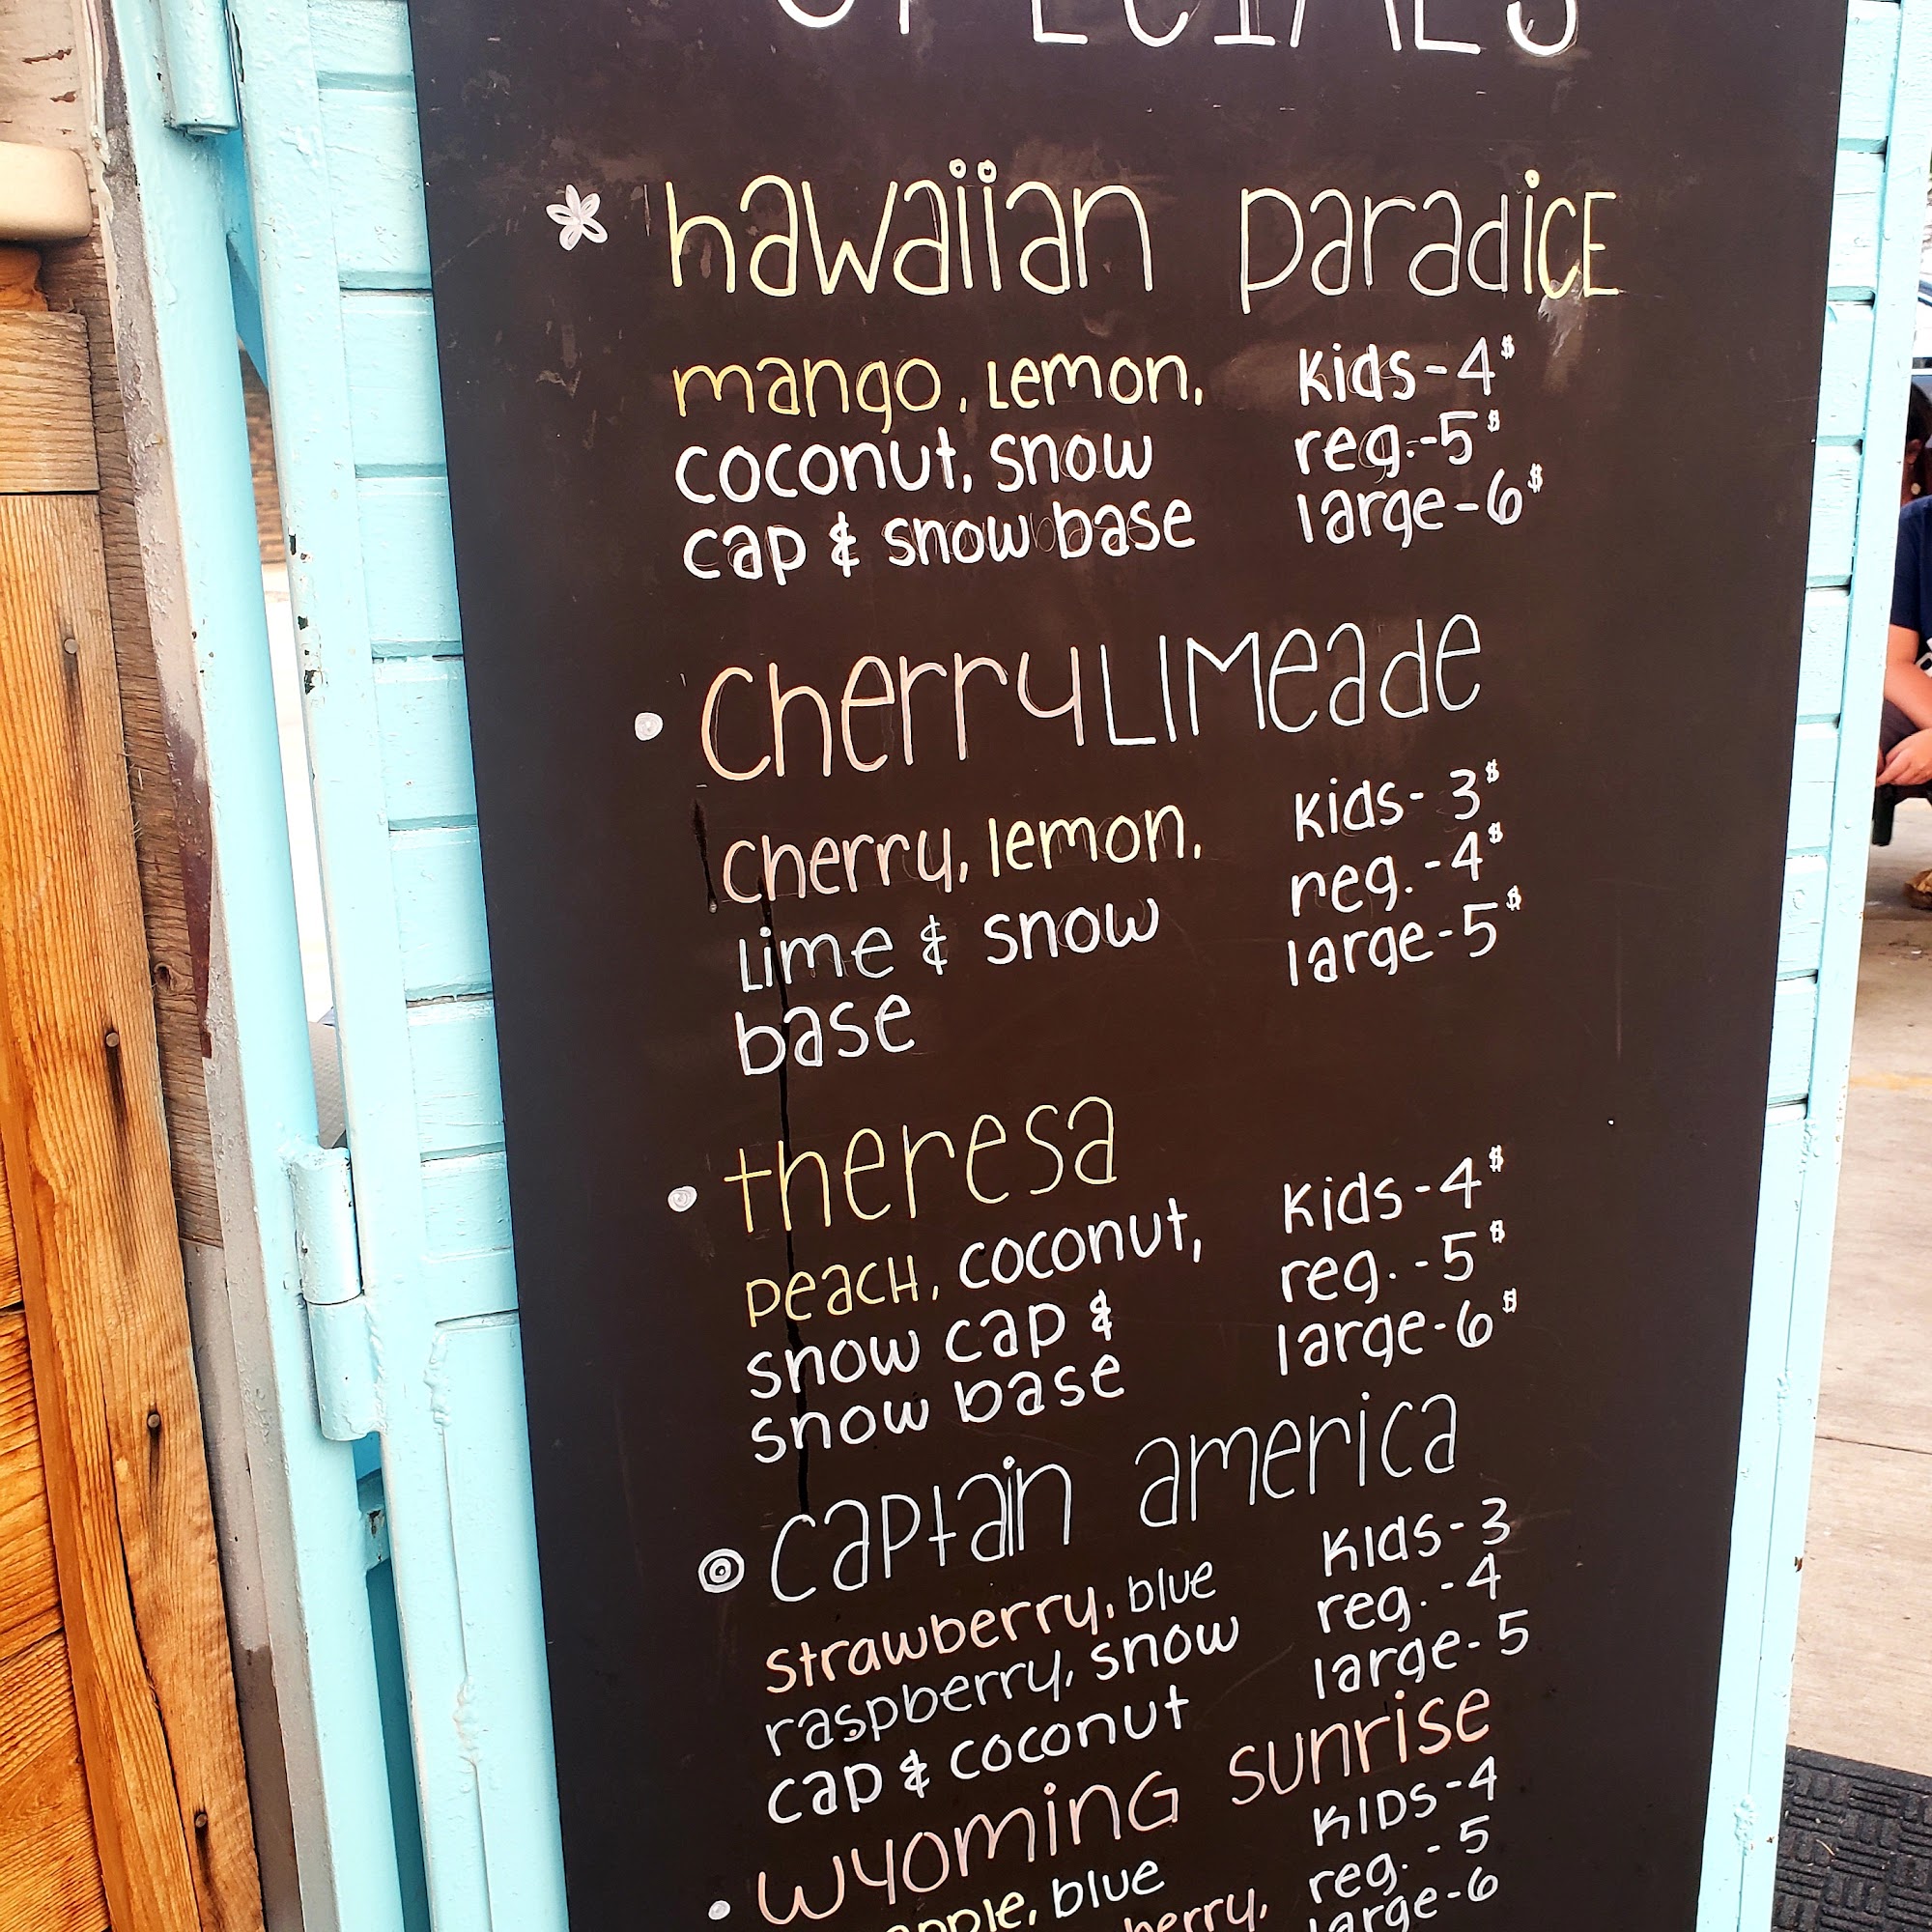 SPECIALS
hawaiian paradiCE
mango, Lemon, kids-4$
coconut, snow reg.-5$
cap & snow base large-6$
CherryLIMeade
cherry, lemon, kids-3$
Lime & snow reg.-4$
base large-5$
theresa
peacH, coconut, kids-4$
snow cap & reg.-5$
snow base large-6$
captain america
strawberry, blue kids-3
raspberry, snow reg.-4
cap & coconut large-5
wyominG sunrise
KIDs-4
blue reg.-5
large-6